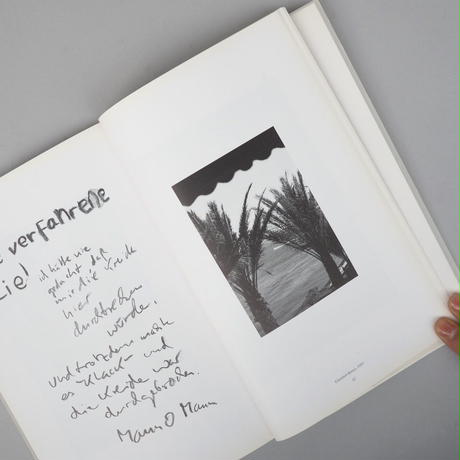 e verfahrene
Ziel
ich hätte nie
gedacht daß
mir die Kreide
hier
durchbrechen
würde,
und trotzdem machte
es "Klack" und
die Kreide war
durchgebrochen.
Mann O Mann